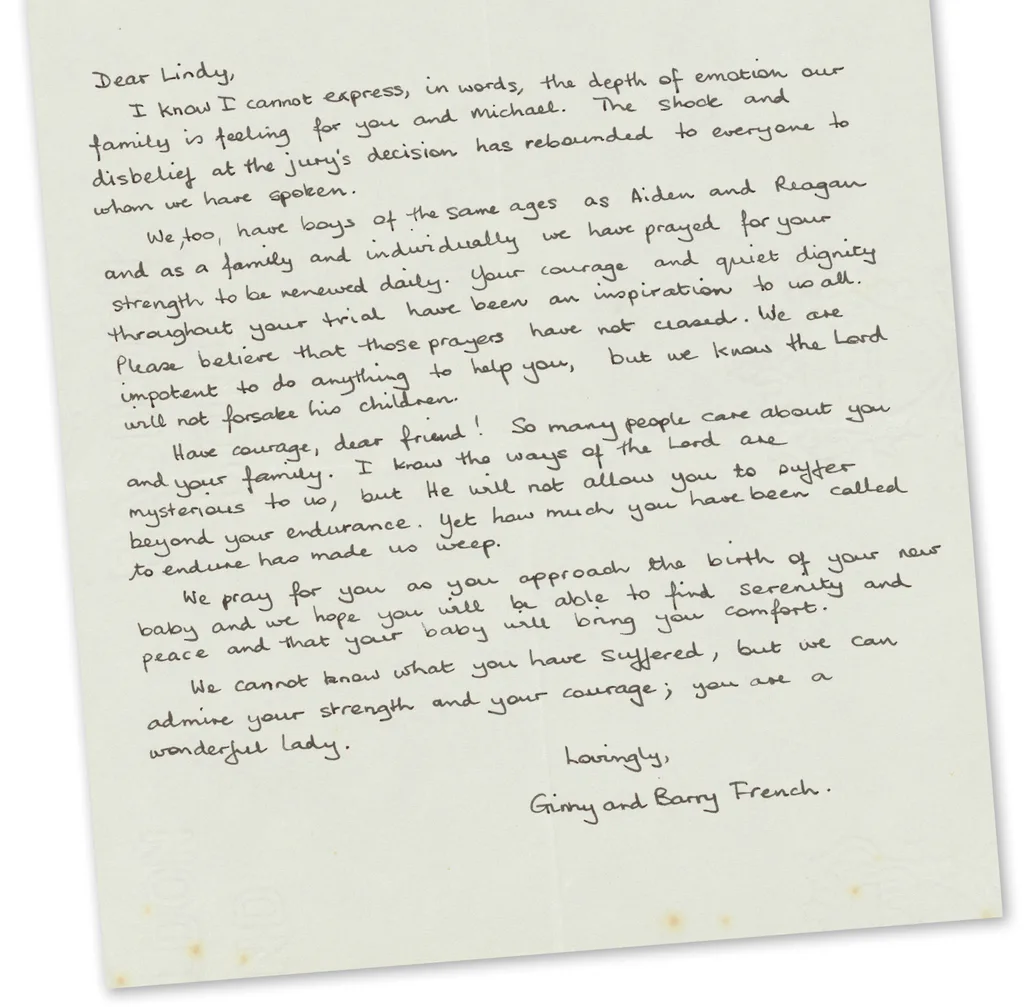 Dear Lindy,
I know I cannot express, in words, the depth of emotion our
family is feeling for you and Michael. The shock and
disbelief at the jury's decision has rebounded to everyone to
whom we have spoken.
We, too, have boys of the same ages as Aiden and Reagan
and as a family and individually we have prayed for your
strength to be renewed daily. Your courage and quiet dignity
throughout your trial have been an inspiration to us all.
Please believe that those prayers have not ceased. We are
impotent to do anything to help you, but we know the Lord
will not forsake his children.
Have courage, dear friend! So many people care about you
and your family. I know the ways of the Lord are
mysterious to us, but He will not allow you to suffer
beyond your endurance. Yet how much you have been called
to endure has made us weep.
We pray for you as you approach the birth of your new
baby and we hope you will be able to find serenity and
peace and that your baby will bring you comfort.
We cannot know what you have suffered, but we can
admire your strength and your courage; you are a
wonderful lady.
Lovingly,
Ginny and Barry French.